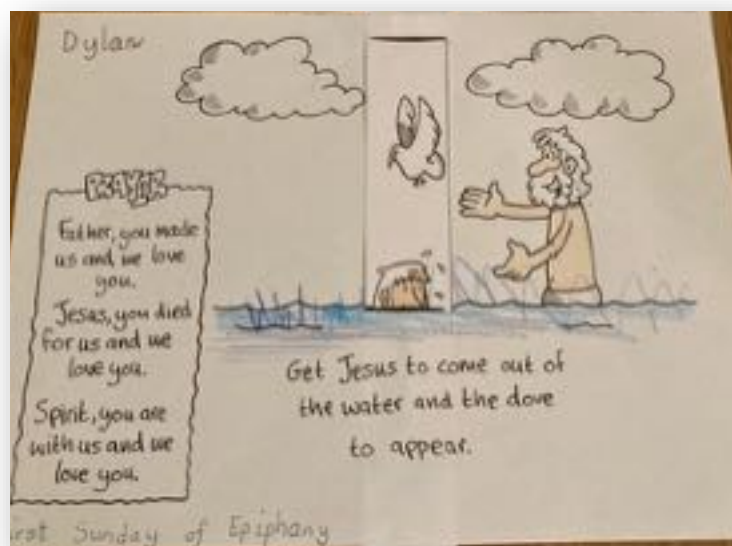 Dylan
PRAYER
Father, you made
us and we love
you.
Jesus, you died
for us and we
love you.
Spirit, you are
with us and we
love you.
Get Jesus to come out of
the water and the dove
to appear.
irst Sunday of Epiphany